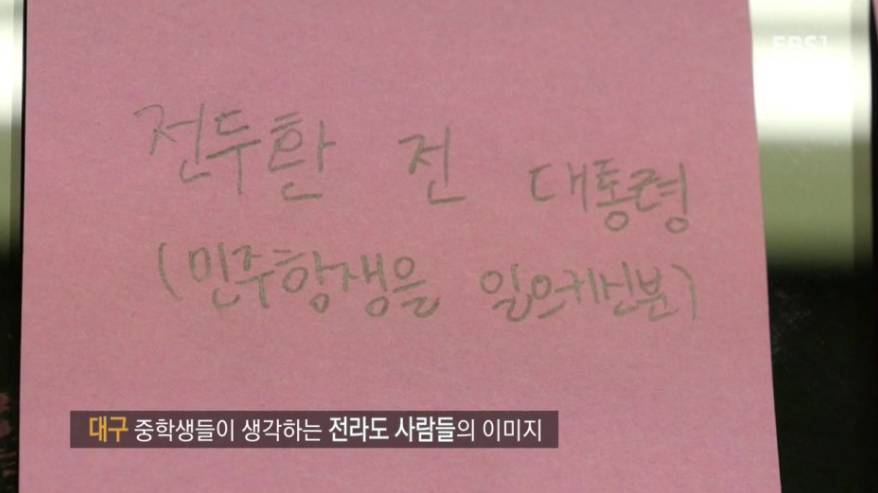 EBS1
전두환 전 대통령
(민주항쟁을 일으키신분)
대구 중학생들이 생각하는 전라도 사람들의 이미지